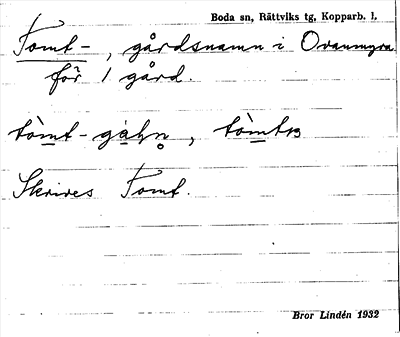 Boda sn, Rättviks tg, Kopparb. l.
Tomt-, gårdsnamn i Ovanmyra
för 1 gård.
Skrives Tomt.
Bror Lindén 1932